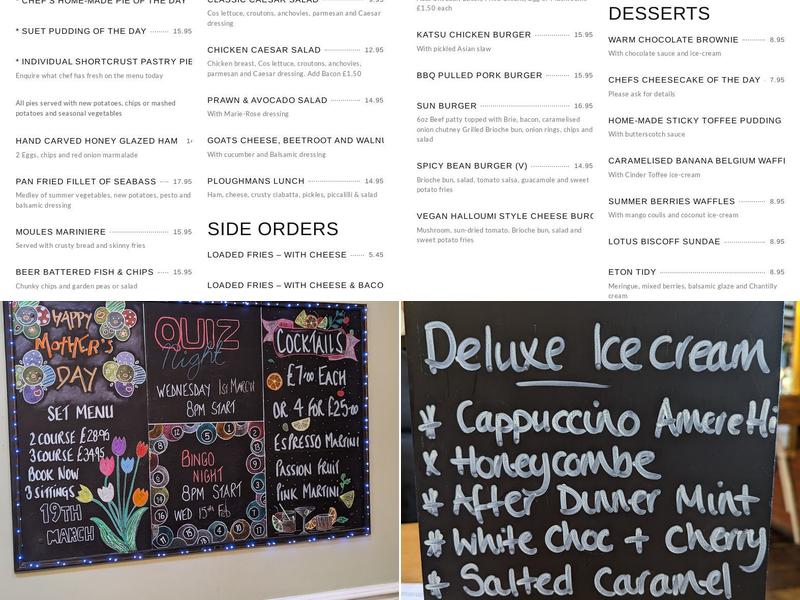 * CHEF'S HOME-MADE PIE OF THE DAY
* SUET PUDDING OF THE DAY 15.95
* INDIVIDUAL SHORTCRUST PASTRY PIE
Enquire what chef has fresh on the menu today
All pies served with new potatoes, chips or mashed
potatoes and seasonal vegetables
HAND CARVED HONEY GLAZED HAM
2 Eggs, chips and red onion marmalade
PAN FRIED FILLET OF SEABASS 17.95
Medley of summer vegetables, new potatoes, pesto and
balsamic dressing
MOULES MARINIERE 15.95
Served with crusty bread and skinny fries
BEER BATTERED FISH & CHIPS 15.95
Chunky chips and garden peas or salad
CLASSIC CAESAR SALAD
Cos lettuce, croutons, anchovies, parmesan and Caesar
dressing
CHICKEN CAESAR SALAD 12.95
Chicken breast, Cos lettuce, croutons, anchovies,
parmesan and Caesar dressing. Add Bacon £1.50
PRAWN & AVOCADO SALAD 14.95
With Marie-Rose dressing
GOATS CHEESE, BEETROOT AND WALNU
With cucumber and Balsamic dressing
PLOUGHMANS LUNCH 14.95
Ham, cheese, crusty ciabatta, pickles, piccalilli & salad
SIDE ORDERS
LOADED FRIES – WITH CHEESE 5.45
LOADED FRIES – WITH CHEESE & BACO
£1.50 each
KATSU CHICKEN BURGER 15.95
With pickled Asian slaw
BBQ PULLED PORK BURGER 15.95
SUN BURGER 16.95
6oz Beef patty topped with Brie, bacon, caramelised
onion chutney Grilled Brioche bun, onion rings, chips and
salad
SPICY BEAN BURGER (V) 14.95
Brioche bun, salad, tomato salsa, guacamole and sweet
potato fries
VEGAN HALLOUMI STYLE CHEESE BURG
Mushroom, sun-dried tomato. Brioche bun, salad and
sweet potato fries
DESSERTS
WARM CHOCOLATE BROWNIE 8.95
With chocolate sauce and ice-cream
CHEFS CHEESECAKE OF THE DAY 7.95
Please ask for details
HOME-MADE STICKY TOFFEE PUDDING
With butterscotch sauce
CARAMELISED BANANA BELGIUM WAFFL
With Cinder Toffee ice-cream
SUMMER BERRIES WAFFLES 8.95
With mango coulis and coconut ice-cream
LOTUS BISCOFF SUNDAE 8.95
ETON TIDY 8.95
Meringue, mixed berries, balsamic glaze and Chantilly
cream
HAPPY
MOTHER'S
DAY
SET MENU
2 COURSE £28.95
3 COURSE £34.95
BOOK NOW
3 SITTINGS
19TH
MARCH
QUIZ
Night
WEDNESDAY 1st MARCH
8PM START
BINGO
NIGHT
8PM START
WED 15th Feb
COCKTAILS
£7.00 EACH
OR 4 FOR £25.00
ESPRESSO MARTINI
PASSION FRUIT
PINK MARTINI
Deluxe Ice cream
* Cappuccino Ameretti
* Honeycombe
* After Dinner Mint
* white choc + cherry
* Salted Caramel